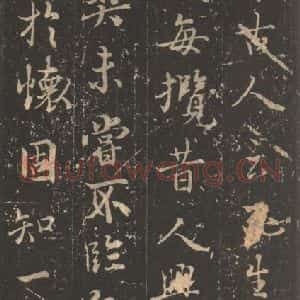 古人云死生
每攬昔人興
未嘗不臨
於懷固知一
shufawang.CN